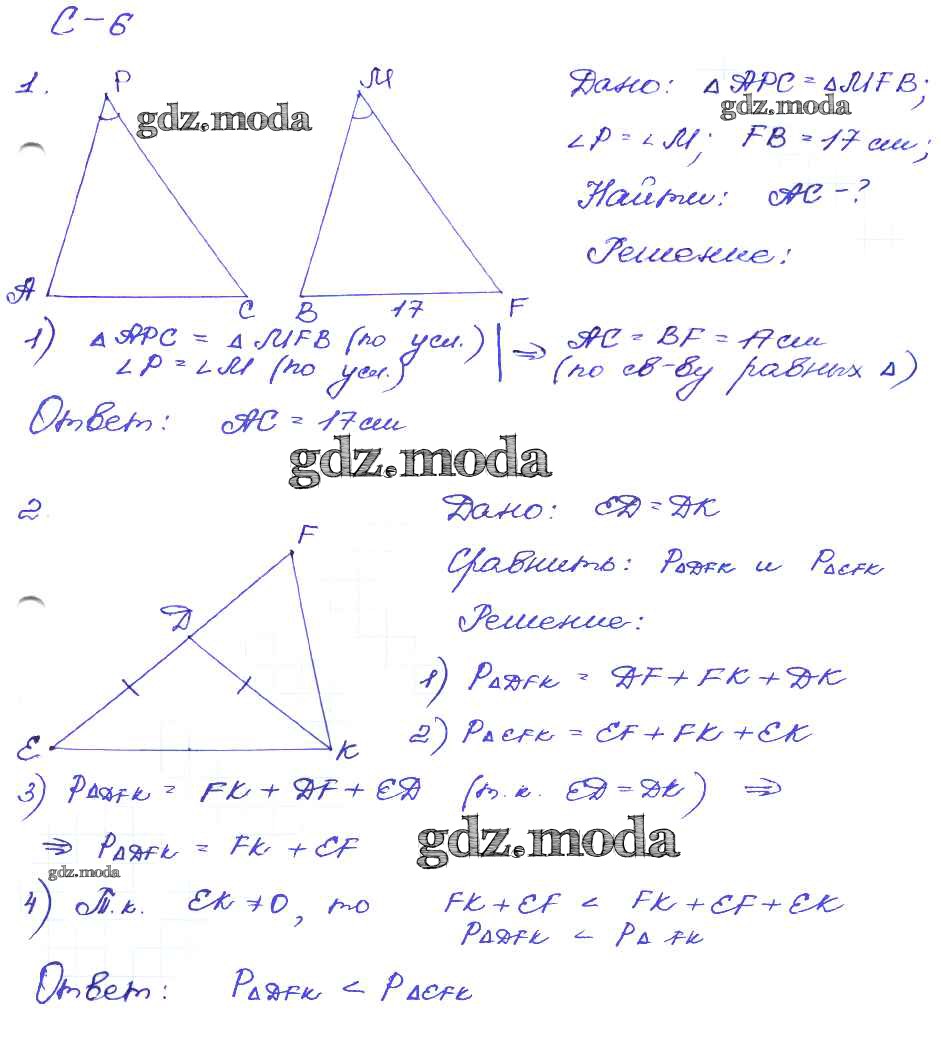 С-6
1.
P
M
A
C
B
17
F
gdz.moda
Дано: △APC = △MFB;
gdz.moda
∠P = ∠M; FB = 17 см;
Найти: AC - ?
Решение:
1) △APC = △MFB (по усл.) | ⇒ AC = BF = 17 см
∠P = ∠M (по усл.) (по св-ву равных △)
Ответ: AC = 17 см
gdz.moda
2.
F
D
E
K
Дано: ED = DK
Сравнить: P△DFK и P△EFK
Решение:
1) P△DFK = DF + FK + DK
2) P△EFK = EF + FK + EK
3) P△DFK = FK + DF + ED (т.к. ED = DK) ⇒
⇒ P△DFK = FK + EF
gdz.moda
gdz.moda
4) Т.к. EK ≠ 0, то FK + EF < FK + EF + EK
P△DFK < P△ FK
Ответ: P△DFK < P△EFK